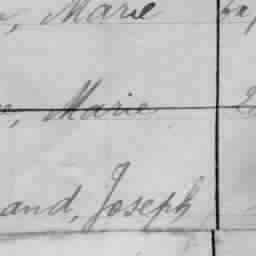 , Marie
, Marie
and, Joseph